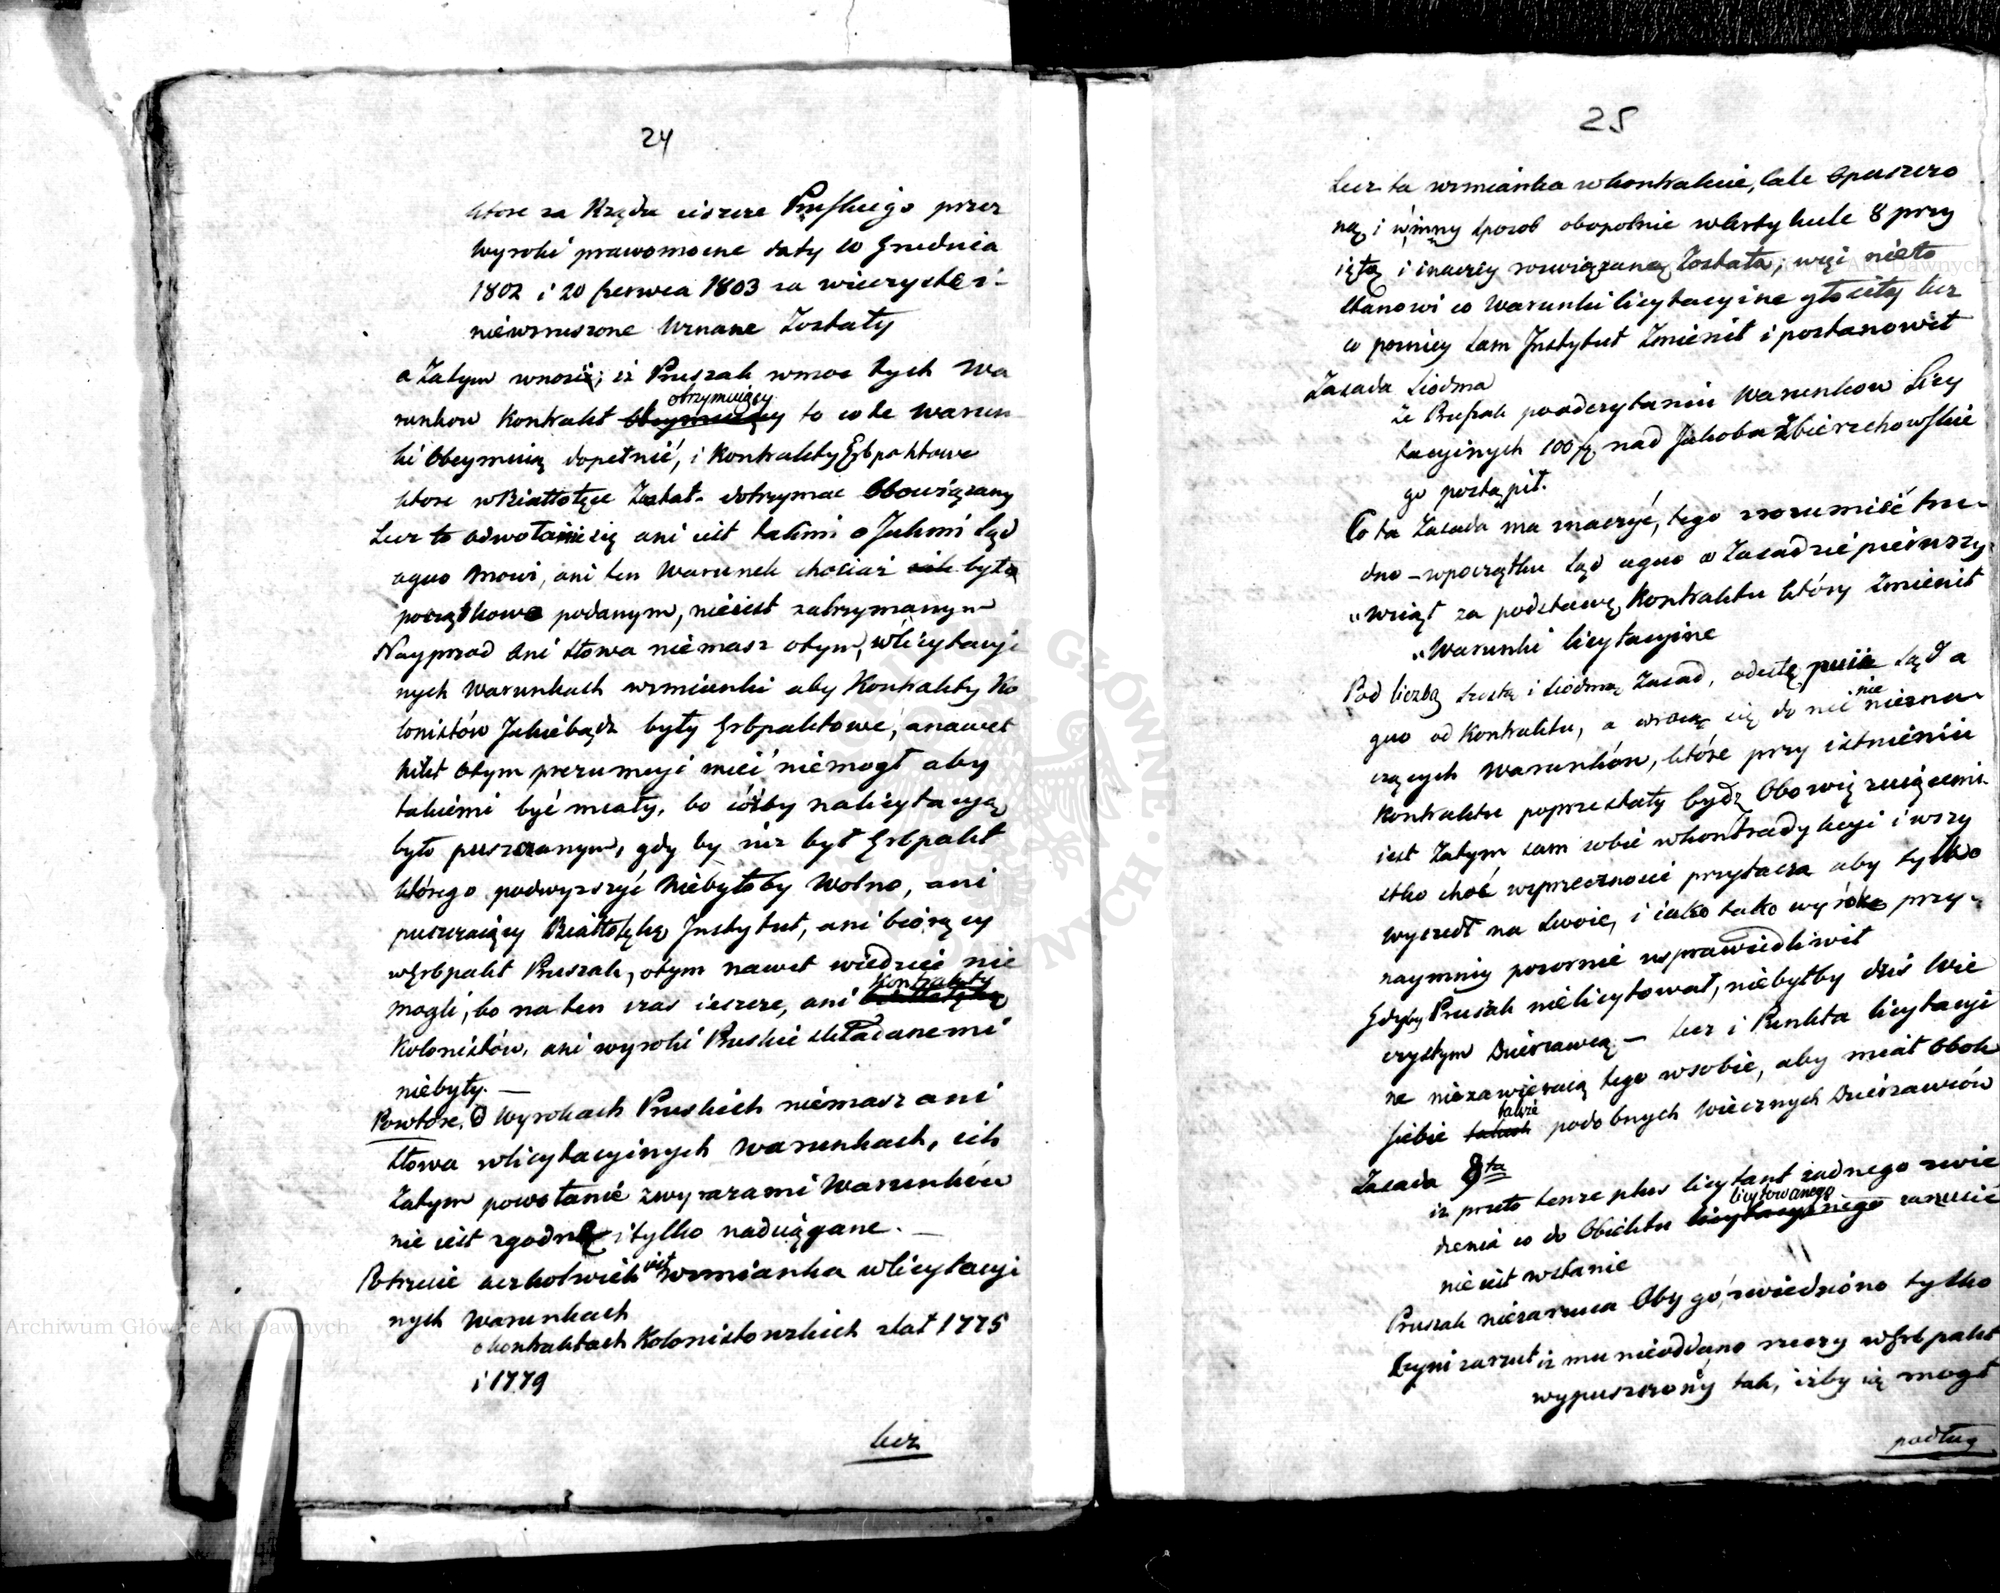 24
które za Rządu ieszcze Pruskiego przez
Wyroki prawomocne daty 10 Grudnia
1802 i 20 Czerwca 1803 za wieczyste i
niewzruszone Uznane Zostały
a Zatym wnosić, iż Pruszak wmoc tych Wa
runkow Kontrakt otrzymuiący to co te Warun
ki Obeymuią dopełnić, i Kontrakty Erbpaktowe
ktore wBiałłołęce Zastał dotrzymac Obowiązany
Lecz to odwołanie się ani iest takim o Jakim Sąd
aquo mowi, ani ten Warunek chociaż był
początkowo podanym, nieiest zatrzymanym
Nayprzod Ani słowa niemasz otym, wlicytacyi
nych Warunkach wzmianki aby Kontrakty Ko
lonistów Jakiebądz były Erbpaktowe, anawet
Nikt Otym prezumcyi mieć niemogł aby
takiemi być miały, bo cóżby nalicytacyą
było puszczanym, gdy by niz był Erbpakt
którego podwyższyć Niebyłoby Wolno, ani
puszczaiący Białłołękę Jnstytut, ani biorący
wErbpakt Pruszak, otym nawet wiedzieć nie
mogli, bo na ten czas ieszcze, ani Kontrakty
Kolonistów, ani wyroki Pruskie składanemi
niebyły. —
Powtóre, O Wyrokach Pruskich niemasz ani
słowa wlicytacyinych Warunkach, ich
Zatym powołanie zwyrazami Warunków
nie iest zgodne i tylko naduiągane. —
Potrzecie aczkolwiek iest wzmianka wlicytacyi
nych Warunkach
okontraktach Kolonistowskich zlat 1775
i 1779
lecz
25
Lecz ta wzmianka wkontrakcie, cale Opuszczo
ną i winny sposob obopolnie wArtykule 8 przy
iętą i inaczey rozwiązaną Została, więc nieto
stanowi co Warunki licytacyine głosiły lecz
co pozniey sam Jnstytut Zmienił i postanowił
Zasada Siodma
Ze Pruszak poodczytaniu Warunkow Licy
tacyinych 100 nad Jakoba Zbierzchowskie
go postąpił.
Co ta Zasada ma znaczyć, tego zrozumieć tru-
dno — wpoczątku Sąd aquo a Zasadzie pierwszy
„wziął za podstawę Kontraktu który Zmienił
„Warunki licytacyine
Pod liczbą szóstą i siódmą Zasad, odstępuie Sąd a
quo od Kontraktu, a wraca się do nic nie niezna-
czących Warunków, które przy istnieniu
Kontraktu poprzestały bydz Obowiązuiącemi
iest Zatym sam sobie wkontradykcyi i wszy
stko choć wsprzeczności przytacza aby tylko
wyszedł na swoie, i iako tako wyrok przy-
naymniy pozornie usprawiedliwił
Gdyby Pruszak nielicytował, niebyłby dziś Wie
czystym Dzierzawcą — lecz i Punkta licytacyi
ne niezawieraią tego wsobie, aby miał Obok
siebie także podobnych Wiecznych Dzierzawców
Zasada 8ta
iż przeto tenze plus licytant żadnego zwie
dzenia co do Obiektu licytowanego zarzucić
nie iest wstanie
Pruszak niezarzuca Oby go zwiedziono tylko
Czyni zarzut iz mu nieoddano rzeczy wErbpakt
wypuszczony tak, iżby ią mogł
podług
Archiwum Główne Akt Dawnych